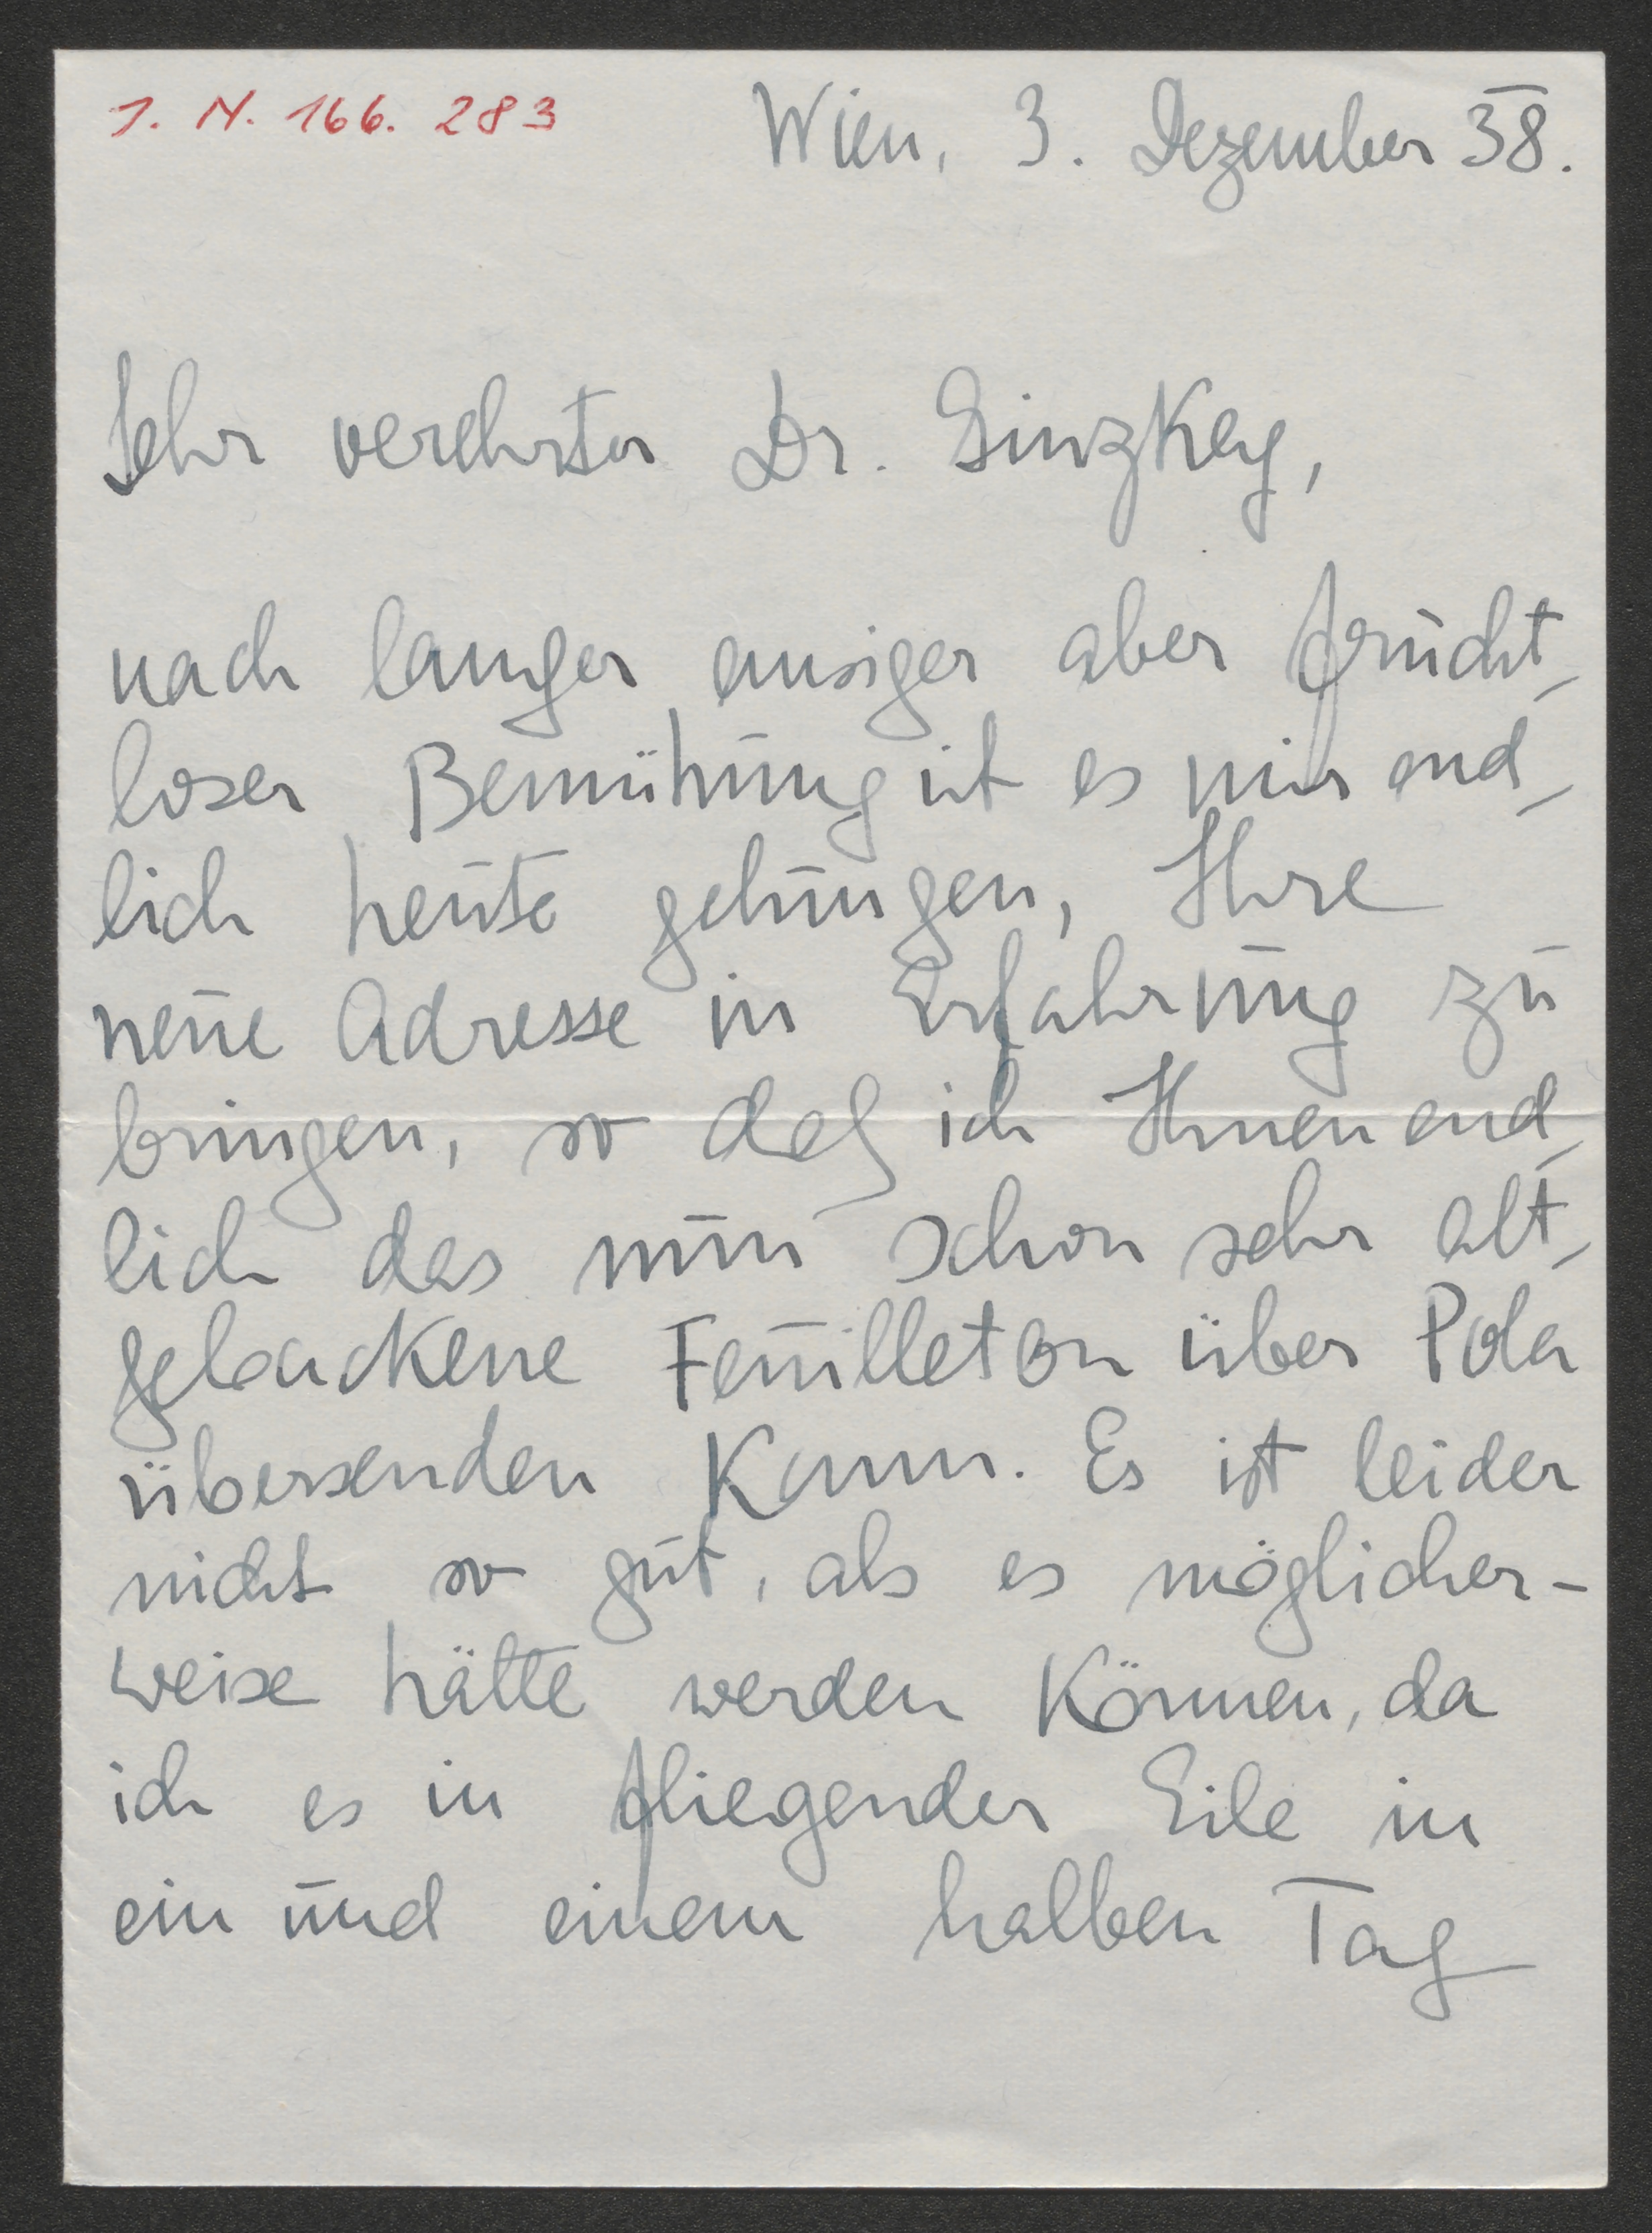 J. N. 166.283
Wien, 3. Dezember 38.
Sehr verehrter Dr. Ginzkey,
nach langer emsiger aber frucht-
loser Bemühung ist es mir end-
lich heute gelungen, Ihre
neue Adresse in Erfahrung zu
bringen, so daß ich Ihnen end-
lich das nun schon sehr alt-
gebackene Feuilleton über Pola
übersenden kann. Es ist leider
nicht so gut, als es möglicher-
weise hätte werden können, da
ich es in fliegender Eile in
ein und einem halben Tag